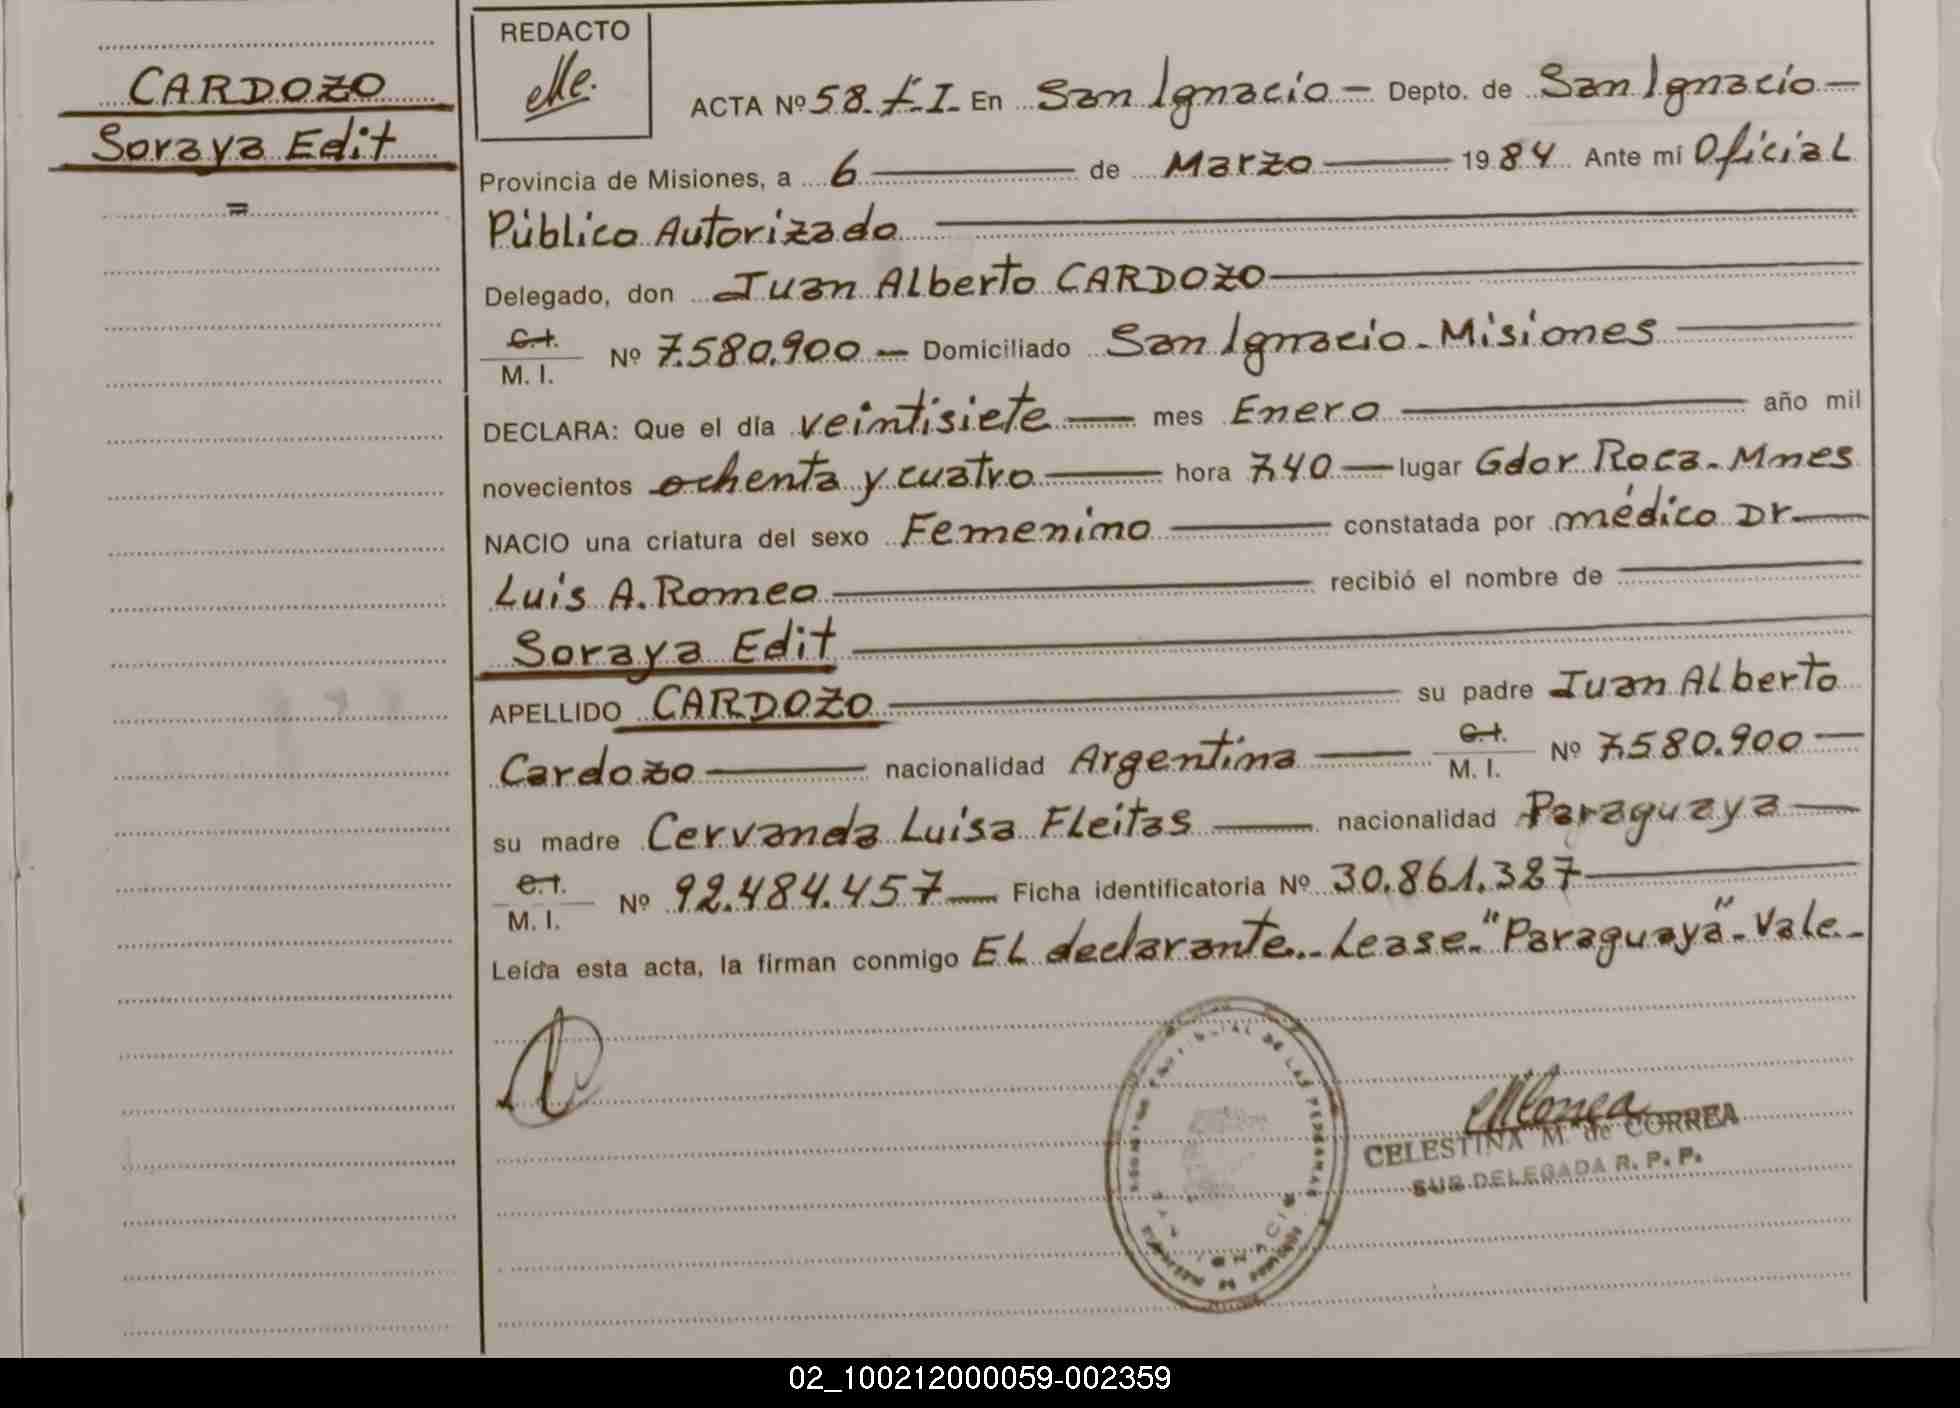 CARDOZO
Soraya Edit
=
REDACTO
ACTA Nº 58. T-I- En San Ignacio - Depto. de San Ignacio -
Provincia de Misiones, a 6 de Marzo 1984 Ante mí Oficial
Público Autorizado
Delegado, don Juan Alberto CARDOZO
C.I.
M. I.
Nº 7.580.900 - Domiciliado San Ignacio - Misiones
DECLARA: Que el día veintisiete mes Enero año mil
novecientos ochenta y cuatro hora 7,40 lugar Gdor Roca - Mnes
NACIO una criatura del sexo Femenino constatada por médico Dr
Luis A. Romeo recibió el nombre de
Soraya Edit
APELLIDO CARDOZO su padre Juan Alberto
Cardozo nacionalidad Argentina C.I. M. I. Nº 7.580.900
su madre Cervanda Luisa Fleitas nacionalidad Paraguaya
C.I.
M. I.
Nº 92.484.457 Ficha identificatoria Nº 30.861.387
Leída esta acta, la firman conmigo El declarante.- Lease - "Paraguaya" - Vale -
DE LAS PERSONAS
CELESTINA M. de CORREA
SUB DELEGADA R. P. P.
02_100212000059-002359